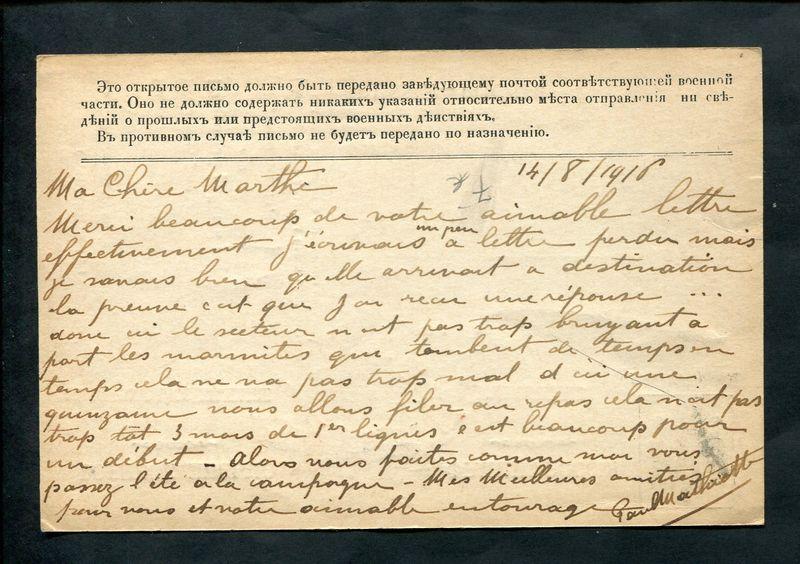 Это открытое письмо должно быть передано завѣдующему почтой соотвѣтствующей военной
части. Оно не должно содержать никакихъ указаній относительно мѣста отправленія ни свѣ-
дѣній о прошлыхъ или предстоящихъ военныхъ дѣиствіяхъ.
Въ противномъ случаѣ письмо не будетъ передано по назначенію.
14/8/1916
Ma Chère Marthe
Merci beaucoup de votre aimable lettre
effectivement j'écrivais un peu a lettre perdu mais
je savais bien qu'elle arrivait a destination
la preuve c'est que j'ai recu une réponse ...
donc ici le secteur n'est pas trop bruyant a
part les marmites qui tombent de temps en
temps cela ne va pas trop mal d'ici une
quinzaine nous allons filer au repas cela n'est pas
trop tôt 3 mois de 1er lignes c'est beaucoup pour
un début - Alors vous faites comme moi vous
passez l'été a la campagne - Mes Meilleures amitiés
pour vous et votre aimable entourage
Paul